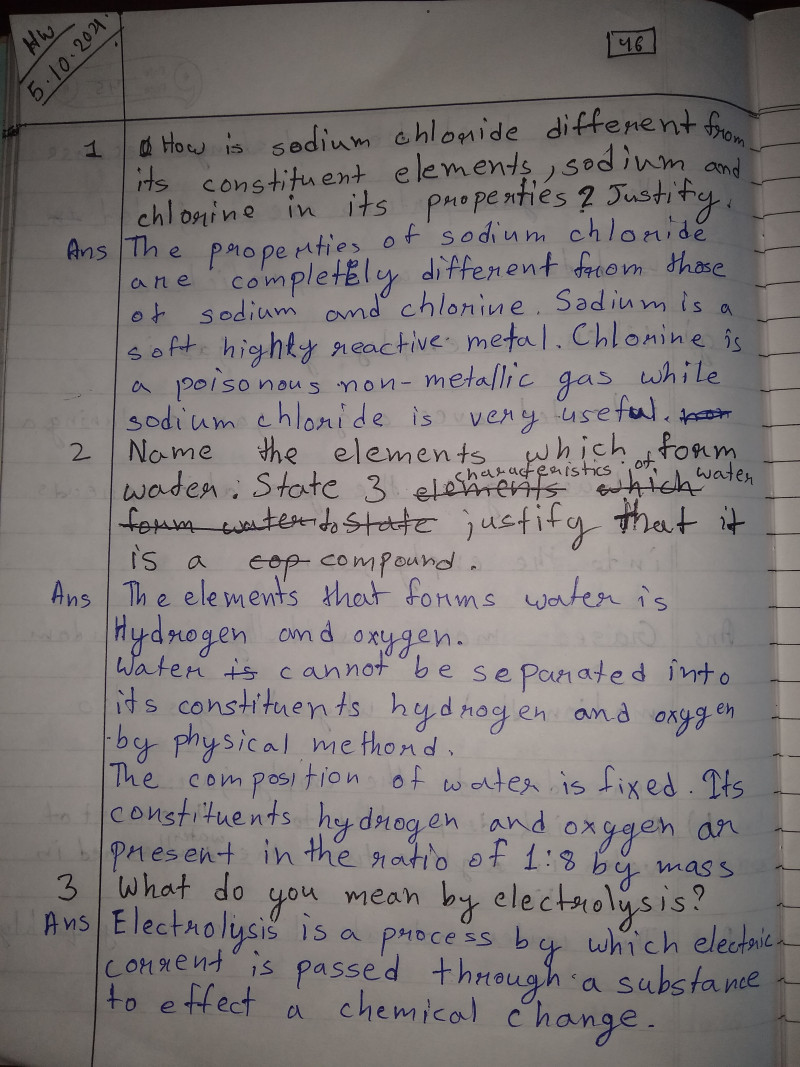 HW
5.10.2021.
46
1 How is sodium chloride different from
its constituent elements, sodium and
chlorine in its properties? Justify.
Ans The properties of sodium chloride
are completely different from those
of sodium and chlorine. Sodium is a
soft highly reactive metal. Chlorine is
a poisonous non-metallic gas while
sodium chloride is very useful.
2 Name the elements which form
characteristics of water
water. State 3 elements which
form water to state justify that it
is a cop compound.
Ans The elements that forms water is
Hydrogen and oxygen.
Water is cannot be separated into
its constituents hydrogen and oxygen
by physical methord.
The composition of water is fixed. Its
constituents hydrogen and oxygen ar
present in the ratio of 1:8 by mass
3 What do you mean by electrolysis?
Ans Electrolysis is a process by which electric
corrent is passed through a substance
to effect a chemical change.